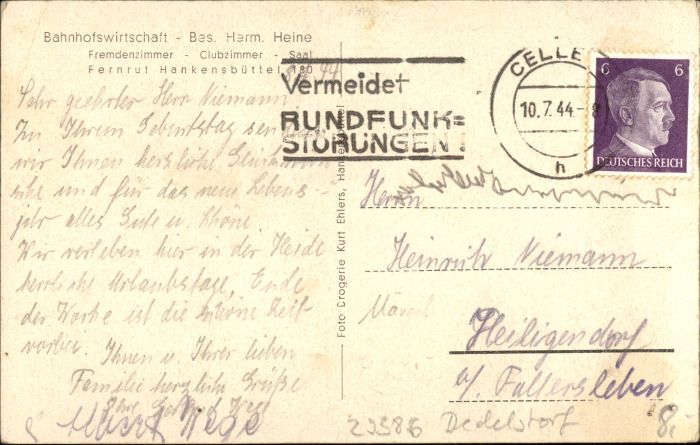 Bahnhofswirtschaft - Bes. Herm. Heine
Fremdenzimmer - Clubzimmer - Saal
Fernruf Hankensbüttel 180
Sehr geehrter Herr Niemann
Zu Ihrem Geburtstag senden
wir Ihnen herzliche Glückwün
sche und für das neue Lebens-
jahr alles Gute u. Schöne
Wir verleben hier in der Heide
herrliche Urlaubstage, Ende
der Woche ist die schöne Zeit
vorbei. Ihnen u. Ihrer lieben
Familie herzliche Grüße
Albert Wege
Foto Drogerie Kurt Ehlers,
Vermeidet
RUNDFUNK=
STÖRUNGEN!
CELLE
10.7.44-8
h
6 6
DEUTSCHES REICH
Herrn
Heinrich Niemann
Heiligendorf
a/ Fallersleben
29386 Dedelstorf
8,